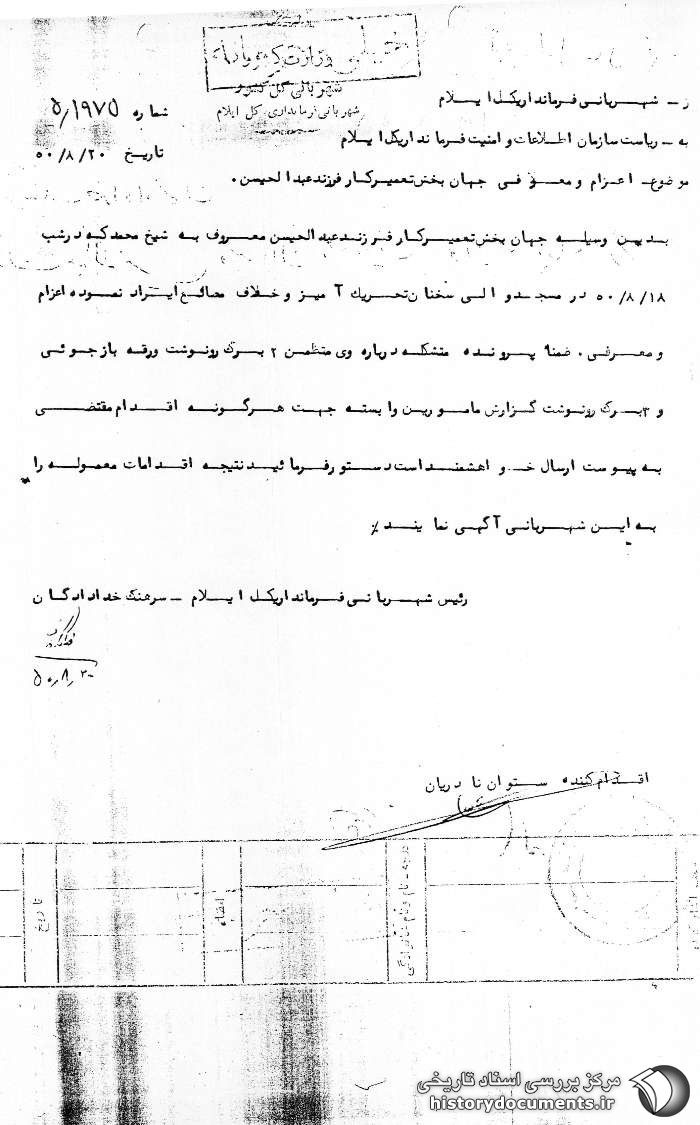 خیلی
وزارت کشور
شهربانی کل کشور
شهربانی فرمانداری کل ایلام
شماره ۵/۱۹۷۵
تاریخ ۵۰/۸/۲۰
ز - شهربانی فرمانداریکل ایلام
به - ریاست سازمان اطلاعات و امنیت فرمانداریکل ایلام
موضوع - اعزام و معرفی جهان بخش تعمیرکار فرزند عبدالحیسن .
بدین وسیله جهان بخش تعمیرکار فرزند عبدالحیسن معروف به شیخ محمد که در شب
۵۰/۸/۱۸ در مسجد والی سخنان تحریک آمیز و خلاف مصالح ایراد نموده اعزام
و معرفی . ضمناً پرونده متشکله درباره وی متظمن ۲ برگ رونوشت ورقه بازجوئی
و ۳ برگ رونوشت گزارش مامورین وابسته جهت هرگونه اقدام مقتضی
به پیوست ارسال خواهشمند است دستور فرمائید نتیجه اقدامات معموله را
به این شهربانی آگهی نمایند ٪
رئیس شهربانی فرمانداریکل ایلام - سرهنگ خدادادگان
۵۰/۸/۲۰
اقدام کننده ستوان نادریان
درجه - نام و نام خانوادگی
امضاء
تاریخ
مرکز بررسی اسناد تاریخی
historydocuments.ir